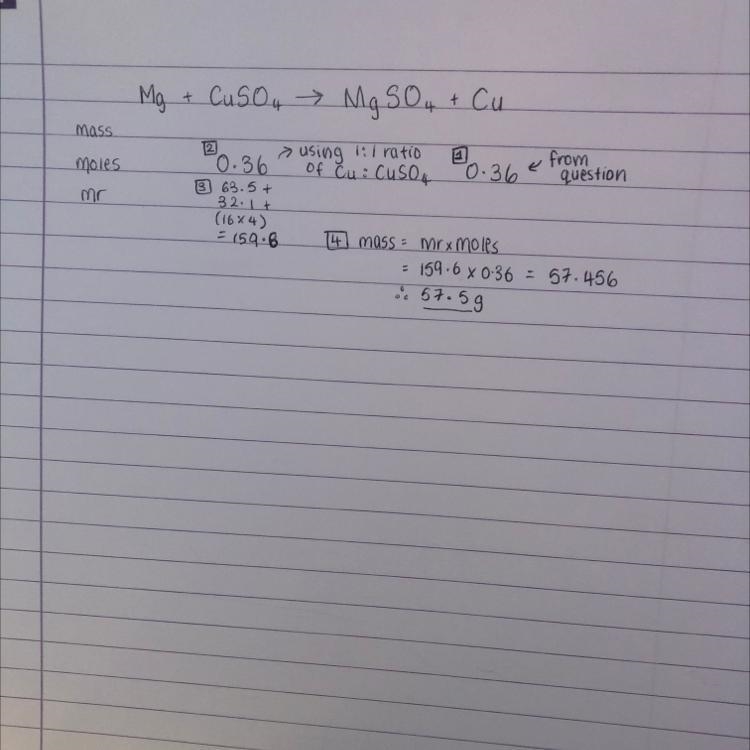 Mg + CuSO₄ → MgSO₄ + Cu
mass
moles [2] 0.36 → using 1:1 ratio of Cu:CuSO₄ [1] 0.36 ← from question
mr [3] 63.5 +
32.1 +
(16×4)
= 159.6
[4] mass = mr × moles
= 159.6 × 0.36 = 57.456
∴ 57.5g